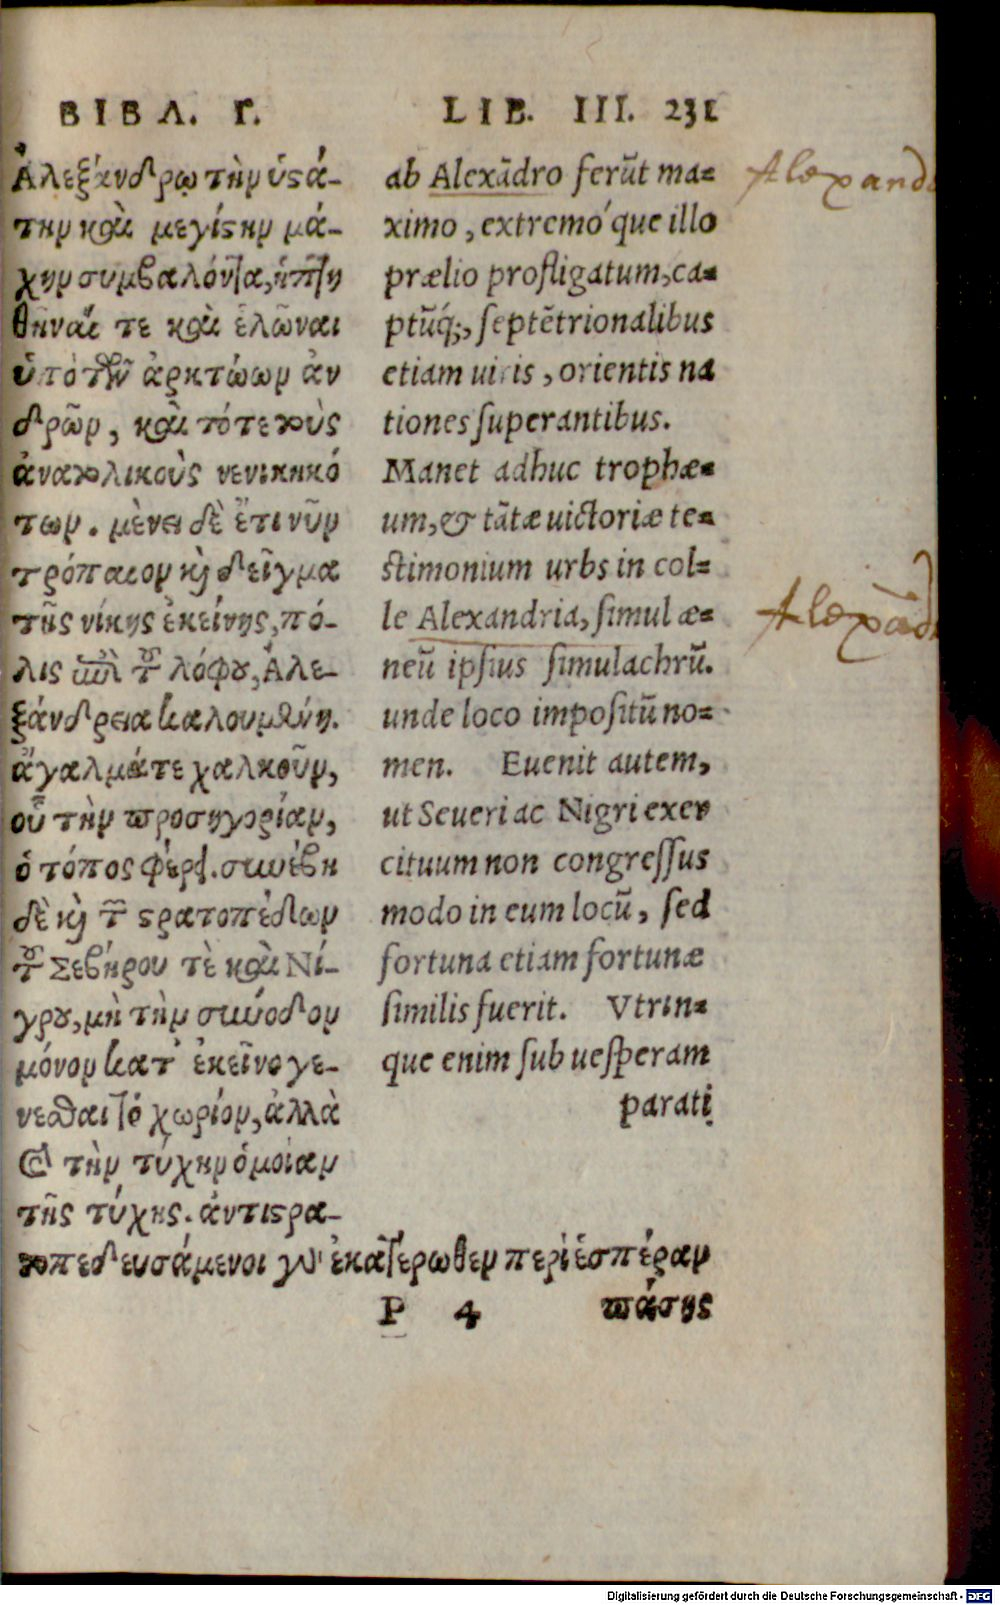 ΒΙΒΛ. Γ.
Ἀλεξάνδρῳ τὴν ὑστά-
την καὶ μεγίστην μά-
χην συμβαλόντα, ἡττη
θῆναί τε καὶ ἁλῶναι
ὑπὸ τῶν ἀρκτώων ἀν
δρῶν, καὶ τότε τοὺς
ἀνατολικοὺς νενικηκό
των. μένει δὲ ἔτι νῦν
τρόπαιον καὶ δεῖγμα
τῆς νίκης ἐκείνης, πό-
λις ἐπὶ τοῦ λόφου, Ἀλε-
ξάνδρεια καλουμένη.
ἄγαλμά τε χαλκοῦν,
οὗ τὴν προσηγορίαν,
ὁ τόπος φέρει. συνέβη
δὲ καὶ τῶν στρατοπέδων
τοῦ Σεβήρου τὲ καὶ Νί-
γρου, μὴ τὴν σύνοδον
μόνον κατ' ἐκεῖνο γε-
νέσθαι τὸ χωρίον, ἀλλὰ
καὶ τὴν τύχην ὁμοίαν
τῆς τύχης. ἀντιστρα-
τοπεδευσάμενοι γὰρ ἑκατέρωθεν περὶ ἑσπέραν
P 4 πάσης
LIB. III. 231
ab Alexãdro ferũt ma=
ximo, extremóque illo
prælio profligatum, ca=
ptũq́;, septẽtrionalibus
etiam uiris, orientis na
tiones superantibus.
Manet adhuc trophæ=
um, & tãtæ uictoriæ te=
stimonium urbs in col=
le Alexandria, simul æ=
neũ ipsius simulachrũ.
unde loco impositũ no=
men. Euenit autem,
ut Seueri ac Nigri exer
cituum non congressus
modo in eum locũ, sed
fortuna etiam fortunæ
similis fuerit. Vtrin=
que enim sub uesperam
parati
Digitalisierung gefördert durch die Deutsche Forschungsgemeinschaft - DFG